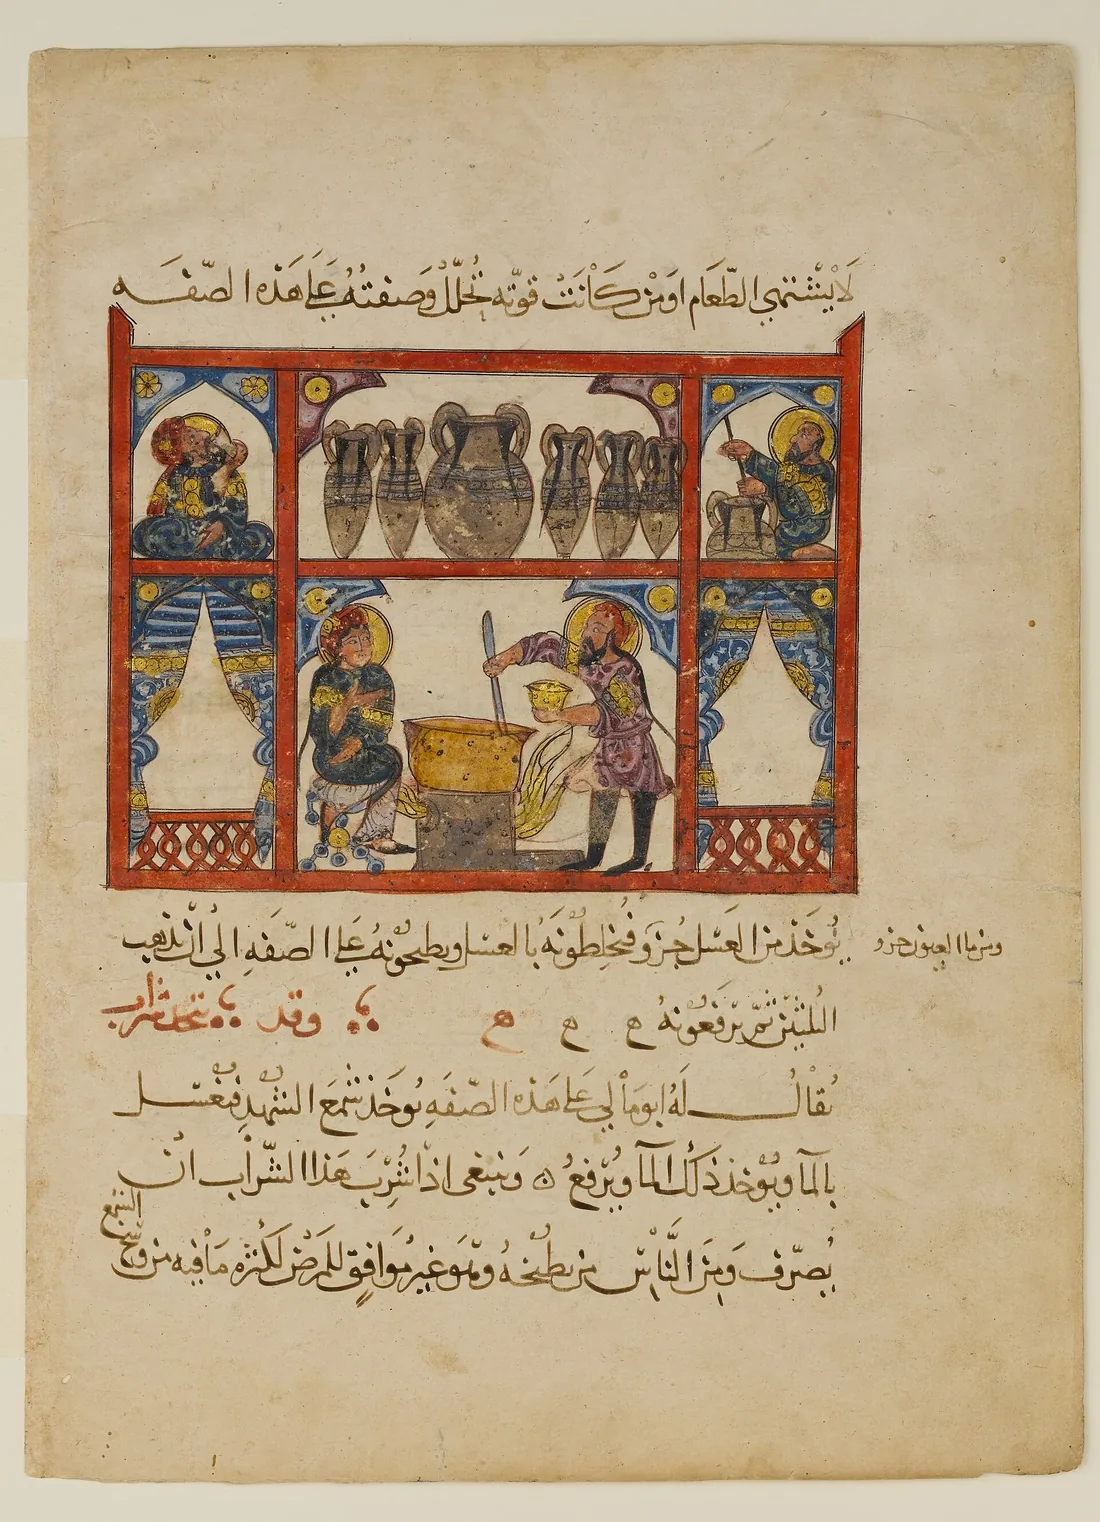 لَا يَشْتَهِي الطَّعَام اوَمَنْ كَانَتْ قوّته تُحلّلُ وَصفتُهُ عَلَى هَذه الصّفَه
يُوخَذ من العَسَل جُزو فُيخلِطُونَهُ بالعسَل ويطبحونهُ عَلي الصّفَهِ الي انْ يذهب
ومن ما العيون جزو
الثلثين ثمّ يَرفَعُونهُ ه ه ه وقد يتخذ شراب
يُقالُ لَهُ ابوُمَاْلي عَلى هَذه الصّفَهِ يُوخَذ شَمَعَ الشهدِ فيُغسَل
بالمآ ويُوخذ ذَلكَ المآ ويُرْفعُ ⊙ وَينبغى اذا شُرِبَ هَذا الشّرَاب انْ
يُصرّف وَمِنَ النَّاسْ من يطبخهُ وَهوَ غير مُوَافِقٍ للمَرضَى لكَثرَه مَا فيه من وسَخ
الشمع